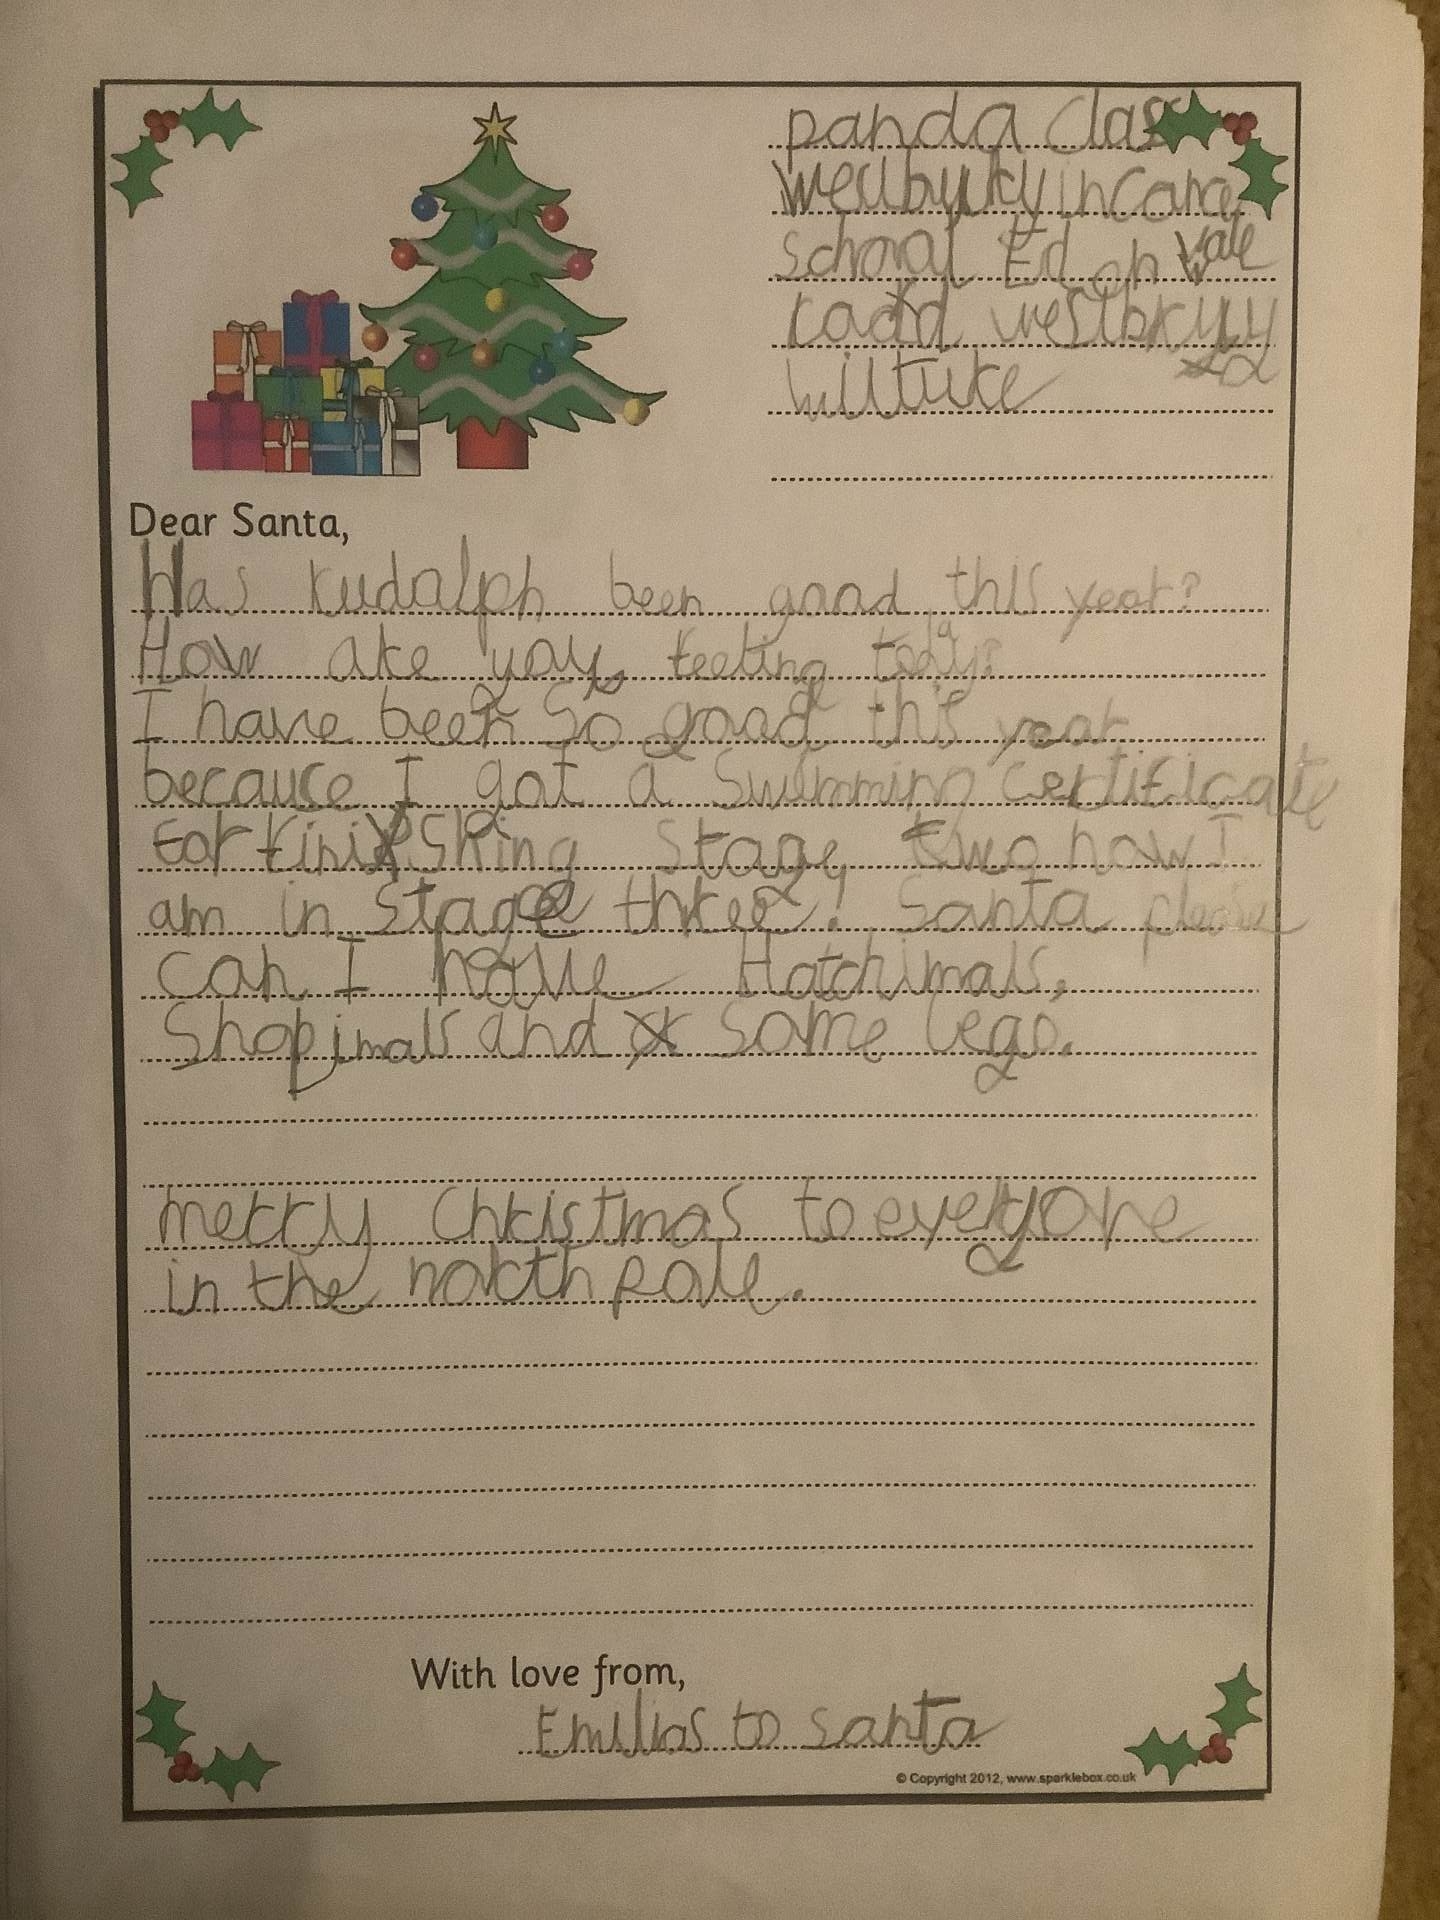 panda Class
school Ed on Vale
road westbury
Dear Santa,
Has rudolph been good this year?
How are you feeling today?
I have been so good this year
because I got a Swimming certificate
for finishing stage two now I
am in stage three! Santa please
can I have Hatchimals,
Shopimals and some lego.
merry christmas to everyone
in the north pole.
With love from,
Emilias to santa
© Copyright 2012, www.sparklebox.co.uk